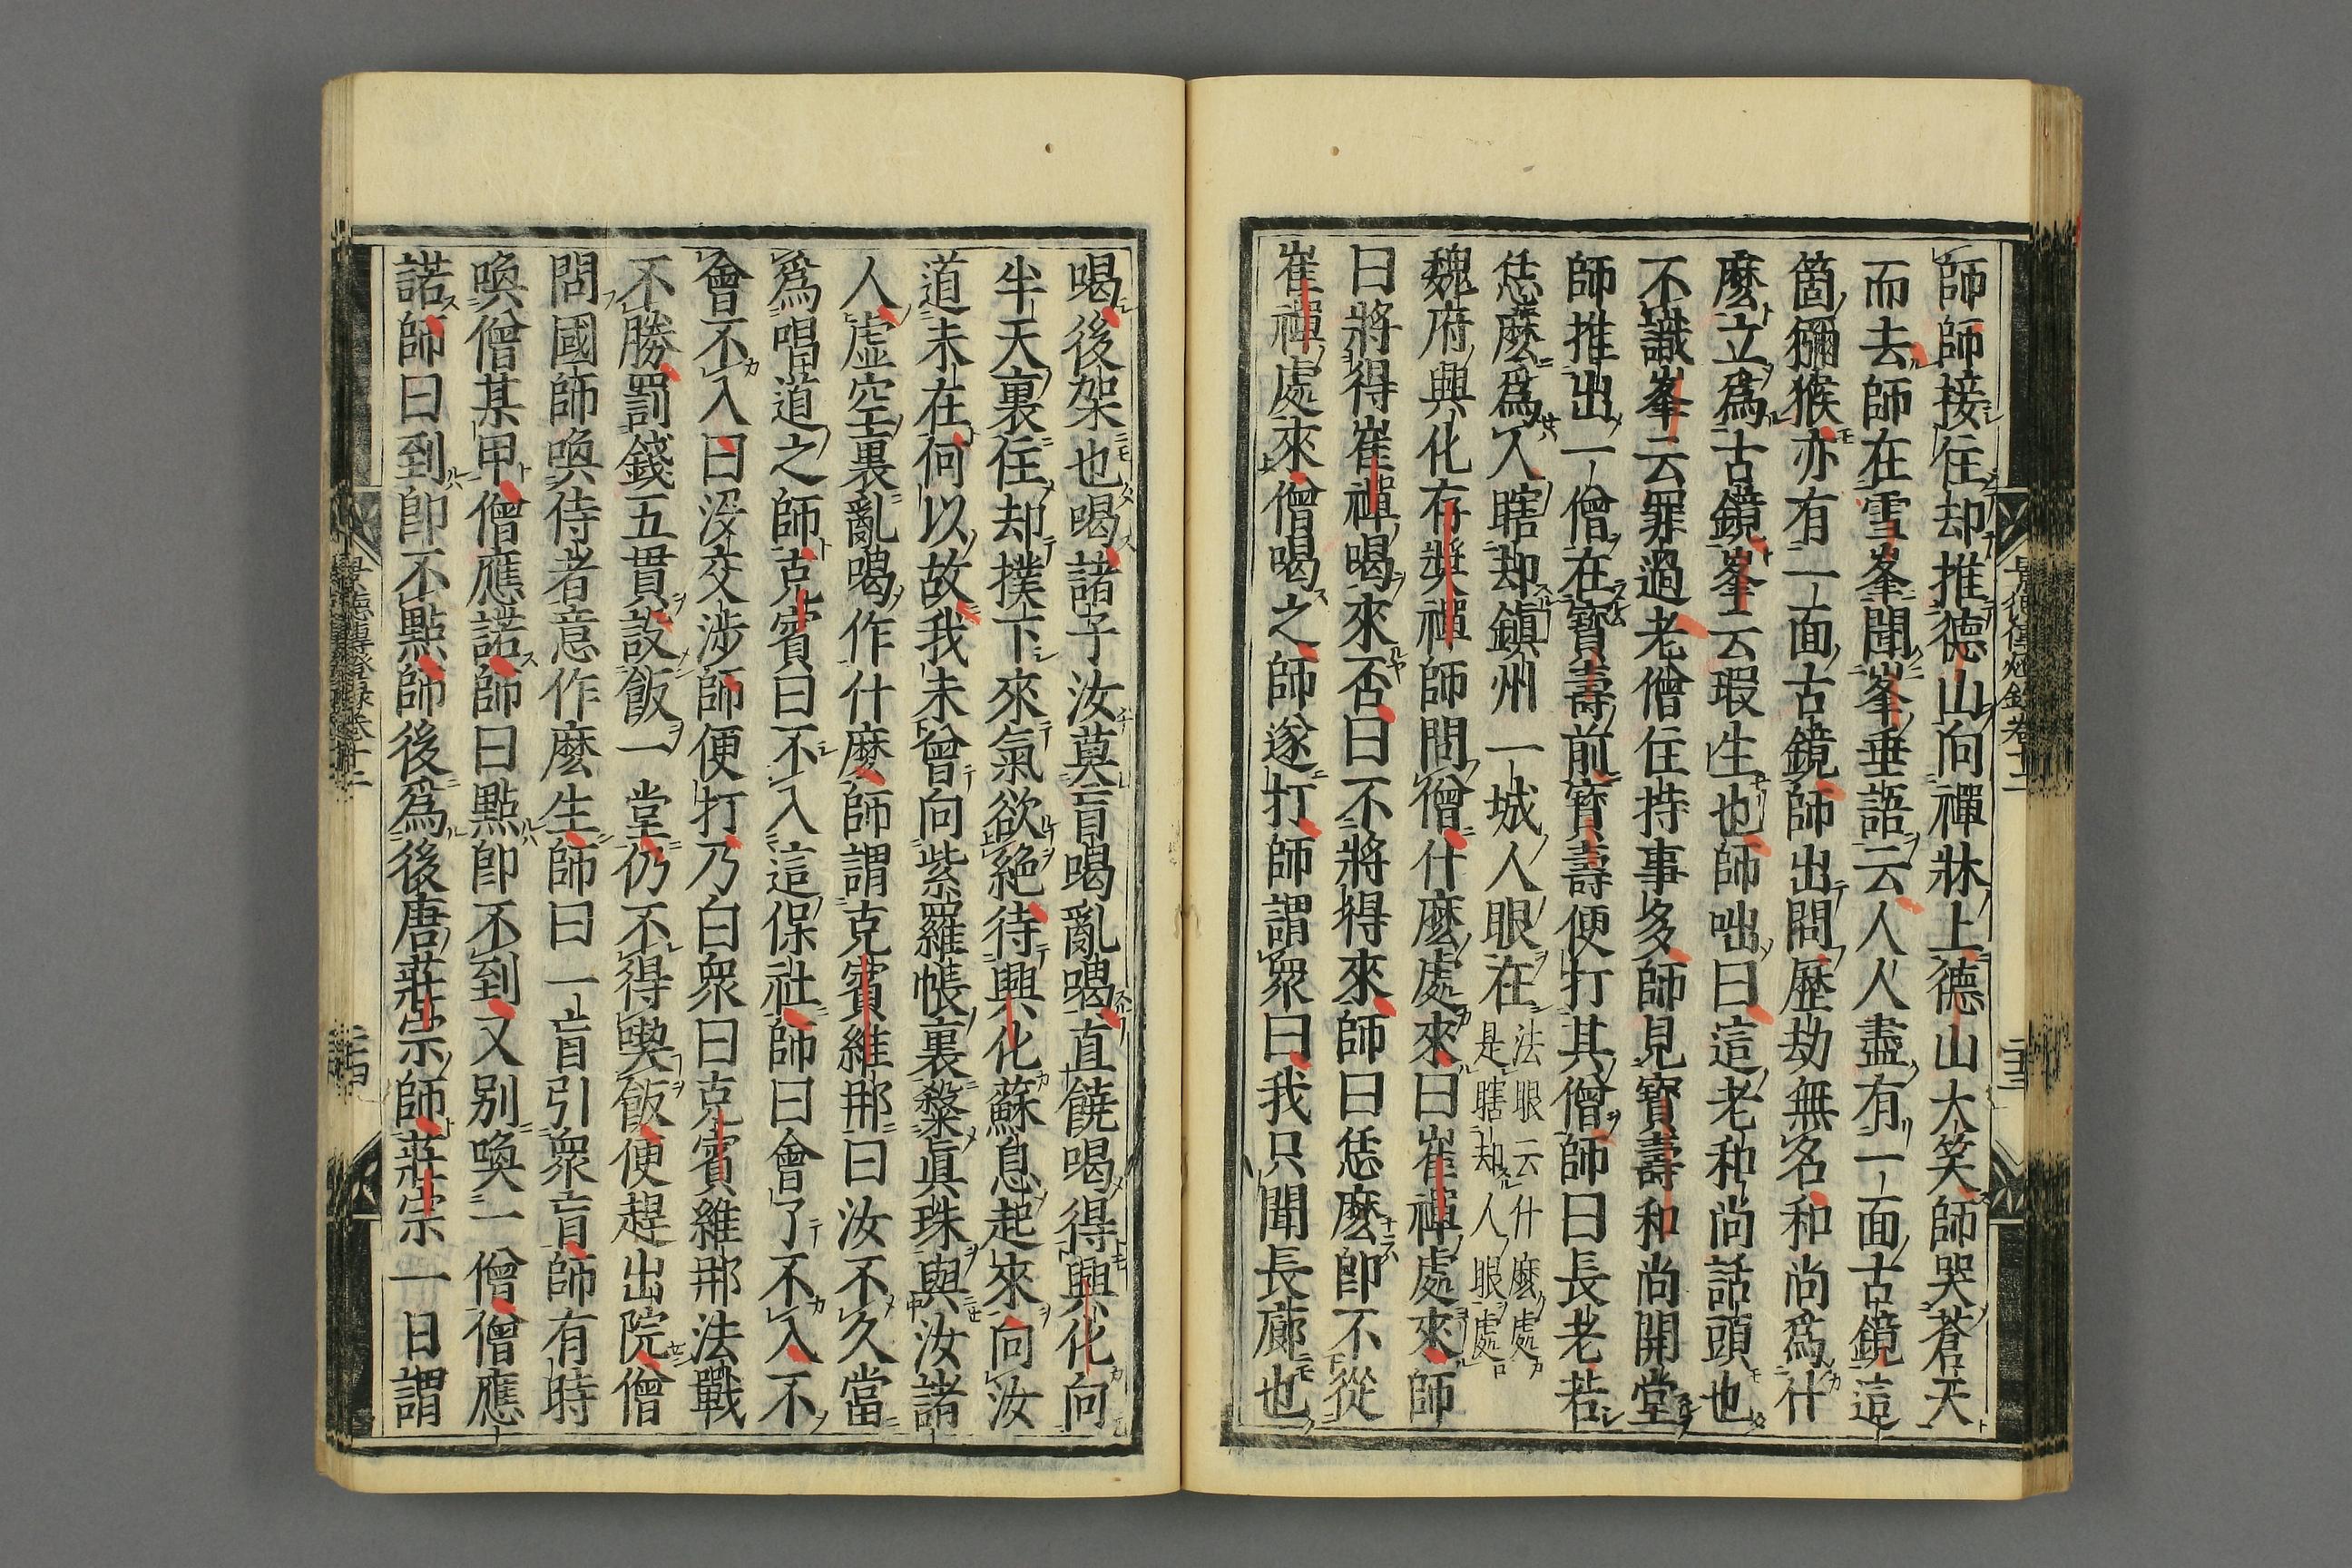 師師接住却推德山向禪牀上德山大笑師哭蒼天
而去師在雪峯聞峯垂語云人人盡有一面古鏡這
箇獼猴亦有一面古鏡師出問歷劫無名和尚爲什
麼立爲古鏡峯云瑕生也師咄曰這老和尚話頭也
不識峯云罪過老僧住持事多師見寶壽和尚開堂
師推出一僧在寶壽前寶壽便打其僧師曰長老若
恁麼爲人瞎却鎮州一城人眼在法眼云什麼處是瞎却人眼處
魏府興化存奬禪師問僧什麼處來曰崔禪處來師
曰將得崔禪喝來否曰不將得來師曰恁麼卽不從
崔禪處來僧喝之師遂打師謂衆曰我只聞長廊也
喝後架也喝諸子汝莫盲喝亂喝直饒喝得興化向
半天裏住却撲下來氣欲絕待興化蘇息起來向汝
道未在何以故我未曾向紫羅帳裏撒眞珠與汝諸
人虛空裏亂喝作什麼師謂克賓維那曰汝不久當
爲唱道之師克賓曰不入這保社師曰會了不入不
會不入曰沒交涉師便打乃白衆曰克賓維那法戰
不勝罰錢五貫設飯一堂仍不得喫飯便趕出院僧
問國師喚侍者意作麼生師曰一盲引衆盲師有時
喚僧某甲僧應諾師曰點卽不到又别喚一僧僧應
諾師曰到卽不點師後爲後唐莊宗師莊宗一日謂